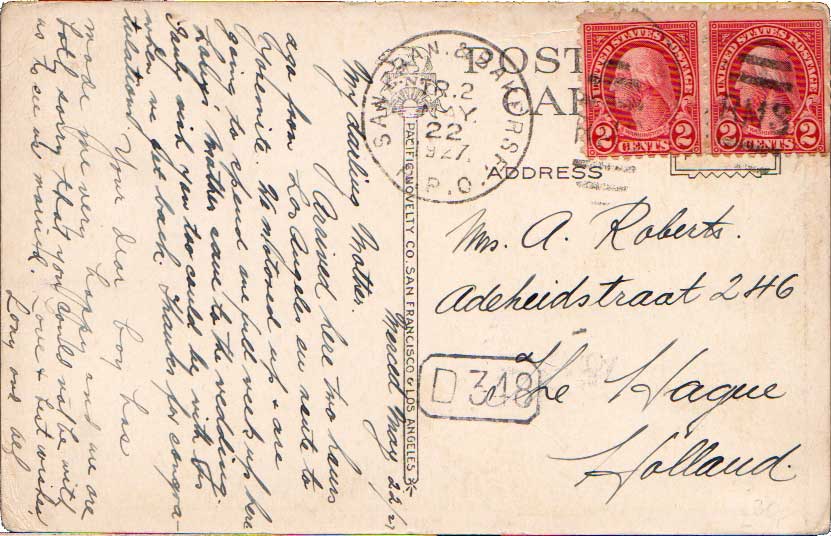 POST CARD
SAN FRAN. & BAKERSF.
TR. 2
MAY
22
1927
R.P.O.
UNITED STATES POSTAGE
2 CENTS 2
UNITED STATES POSTAGE
2 CENTS 2
RMS
ADDRESS
Mrs. A. Roberts.
Adeheidstraat 246
The Hague
Holland.
D 348
PACIFIC NOVELTY CO. SAN FRANCISCO & LOS ANGELES
Merced May 22/27
My darling Mother.
Arrived here two hours
ago from Los Angeles en route to
Yosemite. We motored up & are
going to spend one full week up here
Ruby's Mother came to the wedding.
I only wish you too could be with us
when we get back. Thanks for congra-
tulations. Your dear boy has
made me very happy and we are
both sorry that you could not be with
us to see us married. Love & best wishes